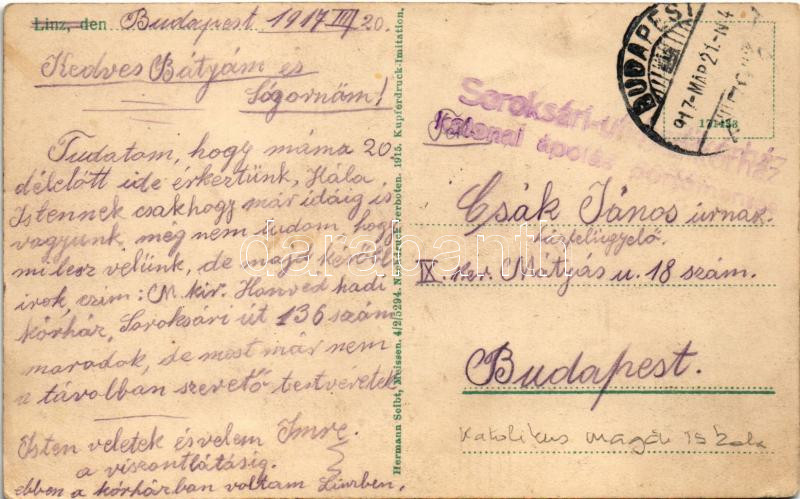 Linz, den Budapest 1917 III/20.
Kedves Bátyám és
Sógornőm!
Tudatom, hogy máma 20.
délelőtt ide érkeztünk, Hála
Istennek csakhogy már idáig is
vagyunk, még nem tudom, hogy
mi lesz velünk, de majd később
irok, czim: M. kir. Honvéd hadi
kórház, Soroksári út 136 szám
maradok, de most már nem
a távolban szerető testvéretek
Isten veletek és velem Imre.
a viszontlátásig.
ebben a kórházban voltam Linzben.
Hermann Seibt, Meissen. 4/2/5294. Nachdruck verboten. 1915. Kupferdruck-Imitation.
BUDAPEST
917-MÁR 21-N 4
171458
Soroksári-úti
Katonai ápolás portómentes
Csák János úrnak
házfelügyelő.
IX. ker. Mátyás u. 18 szám.
Budapest.
Katolikus magán iskola
darabanth